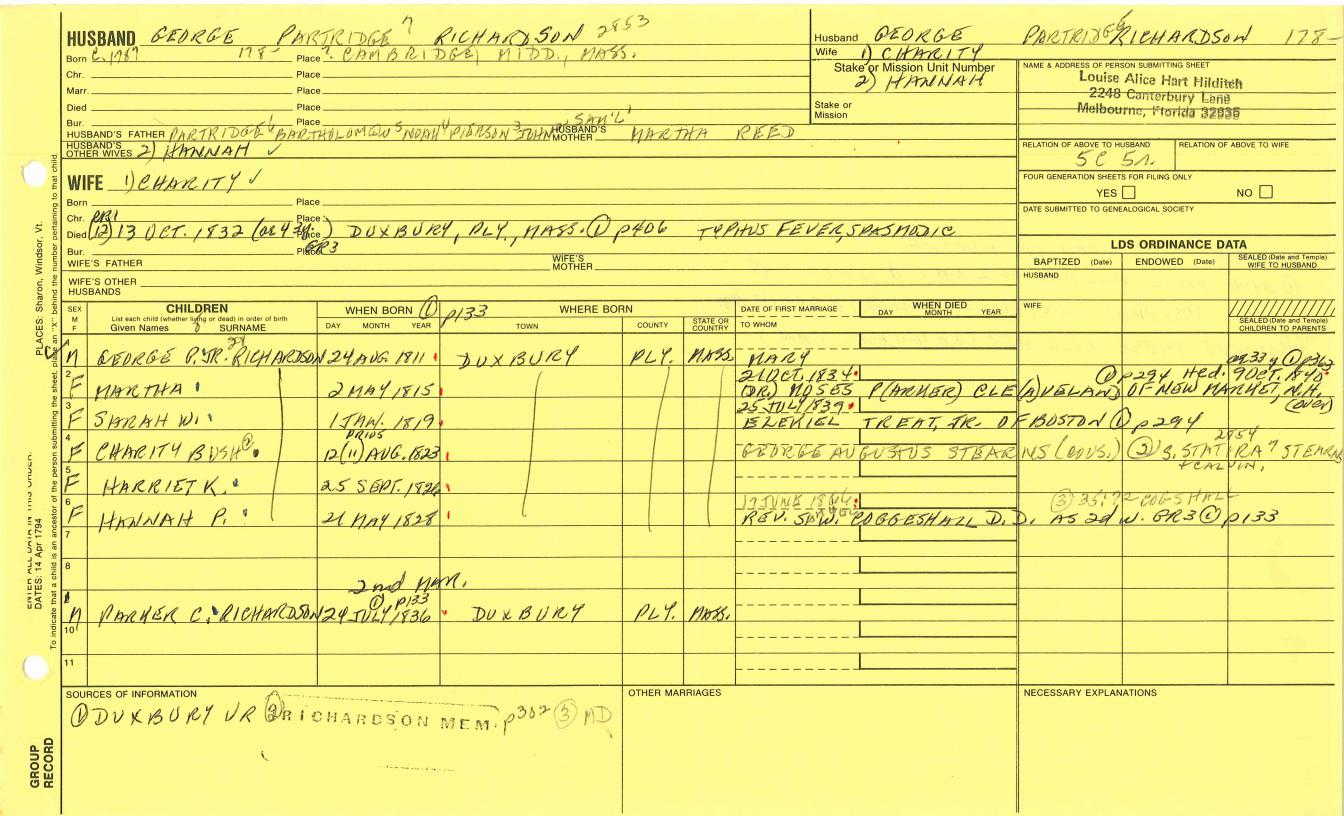 HUSBAND GEORGE PARTRIDGE ? RICHARDSON 2853
Born C. 1787 178- Place ? CAMBRIDGE, MIDD., MASS.
Chr. Place
Marr. Place
Died Place
Bur. Place
HUSBAND'S FATHER PARTRIDGE 6 BARTHOLOMEW 5 NOAH 4 PIERSON 3 JOHN SAM'L 1 HUSBAND'S MOTHER MARTHA REED
HUSBAND'S OTHER WIVES 2) HANNAH ✓
Husband GEORGE PARTRIDGE 6 RICHARDSON 178-
Wife 1) CHARITY
Stake or Mission Unit Number
2) HANNAH
Stake or Mission
NAME & ADDRESS OF PERSON SUBMITTING SHEET
Louise Alice Hart Hilditch
2248 Canterbury Lane
Melbourne, Florida 32935
RELATION OF ABOVE TO HUSBAND RELATION OF ABOVE TO WIFE
5C 5r.
FOUR GENERATION SHEETS FOR FILING ONLY
YES NO
DATE SUBMITTED TO GENEALOGICAL SOCIETY
WIFE 1) CHARITY ✓
Born Place
Chr. Place
Died (12) 13 OCT. 1832 DUXBURY, PLY., MASS. ① p406 TYPHUS FEVER, SPASMODIC
Bur. Place GR3
WIFE'S FATHER WIFE'S MOTHER
WIFE'S OTHER HUSBANDS
LDS ORDINANCE DATA
BAPTIZED (Date) ENDOWED (Date) SEALED (Date and Temple) WIFE TO HUSBAND
HUSBAND
WIFE
SEALED (Date and Temple) CHILDREN TO PARENTS
SEX M F
CHILDREN
List each child (whether living or dead) in order of birth
Given Names SURNAME
WHEN BORN ① p133
DAY MONTH YEAR
WHERE BORN
TOWN COUNTY STATE OR COUNTRY
DATE OF FIRST MARRIAGE
TO WHOM
WHEN DIED
DAY MONTH YEAR
M GEORGE P. JR. RICHARDSON 24 AUG. 1811 DUXBURY PLY. MASS. MARY
2 F MARTHA 2 MAY 1815 21 OCT. 1834 (DR) MOSES P(ARKER) CLE(A)VELAND OF NEW MARKET, N.H. (OVER)
① p294 9 OCT. 1840
3 F SARAH W. 1 JAN. 1819 25 JULY 1839 EZEKIEL TREAT, JR. OF BOSTON ① p294
4 F CHARITY BUSH ② 12 (11) AUG. 1823 GEORGE AUGUSTUS STEARNS (COUS.) ② S. STATIRA 7 STEARNS + CALVIN. 2954
5 F HARRIET K. 25 SEPT. 1826
6 F HANNAH P. 21 MAY 1828 17 JUNE 1866 REV. S. W. COGGESHALL D.D. AS 2d W. GR3 ① p133
③ 35:72 COGSHALL
7
8
2nd MAR.
① p133
M PARKER C. RICHARDSON 24 JULY 1836 DUXBURY PLY. MASS.
10
11
SOURCES OF INFORMATION
① DUXBURY VR ② RICHARDSON MEM. p302 ③ MD
OTHER MARRIAGES
NECESSARY EXPLANATIONS
PLACES: Sharon, Windsor, Vt.
ENTER ALL DATA IN THIS ORDER:
DATES: 14 Apr 1794
To indicate that a child is an ancestor of the person submitting the sheet, place an "X" behind the number pertaining to that child.
GROUP RECORD